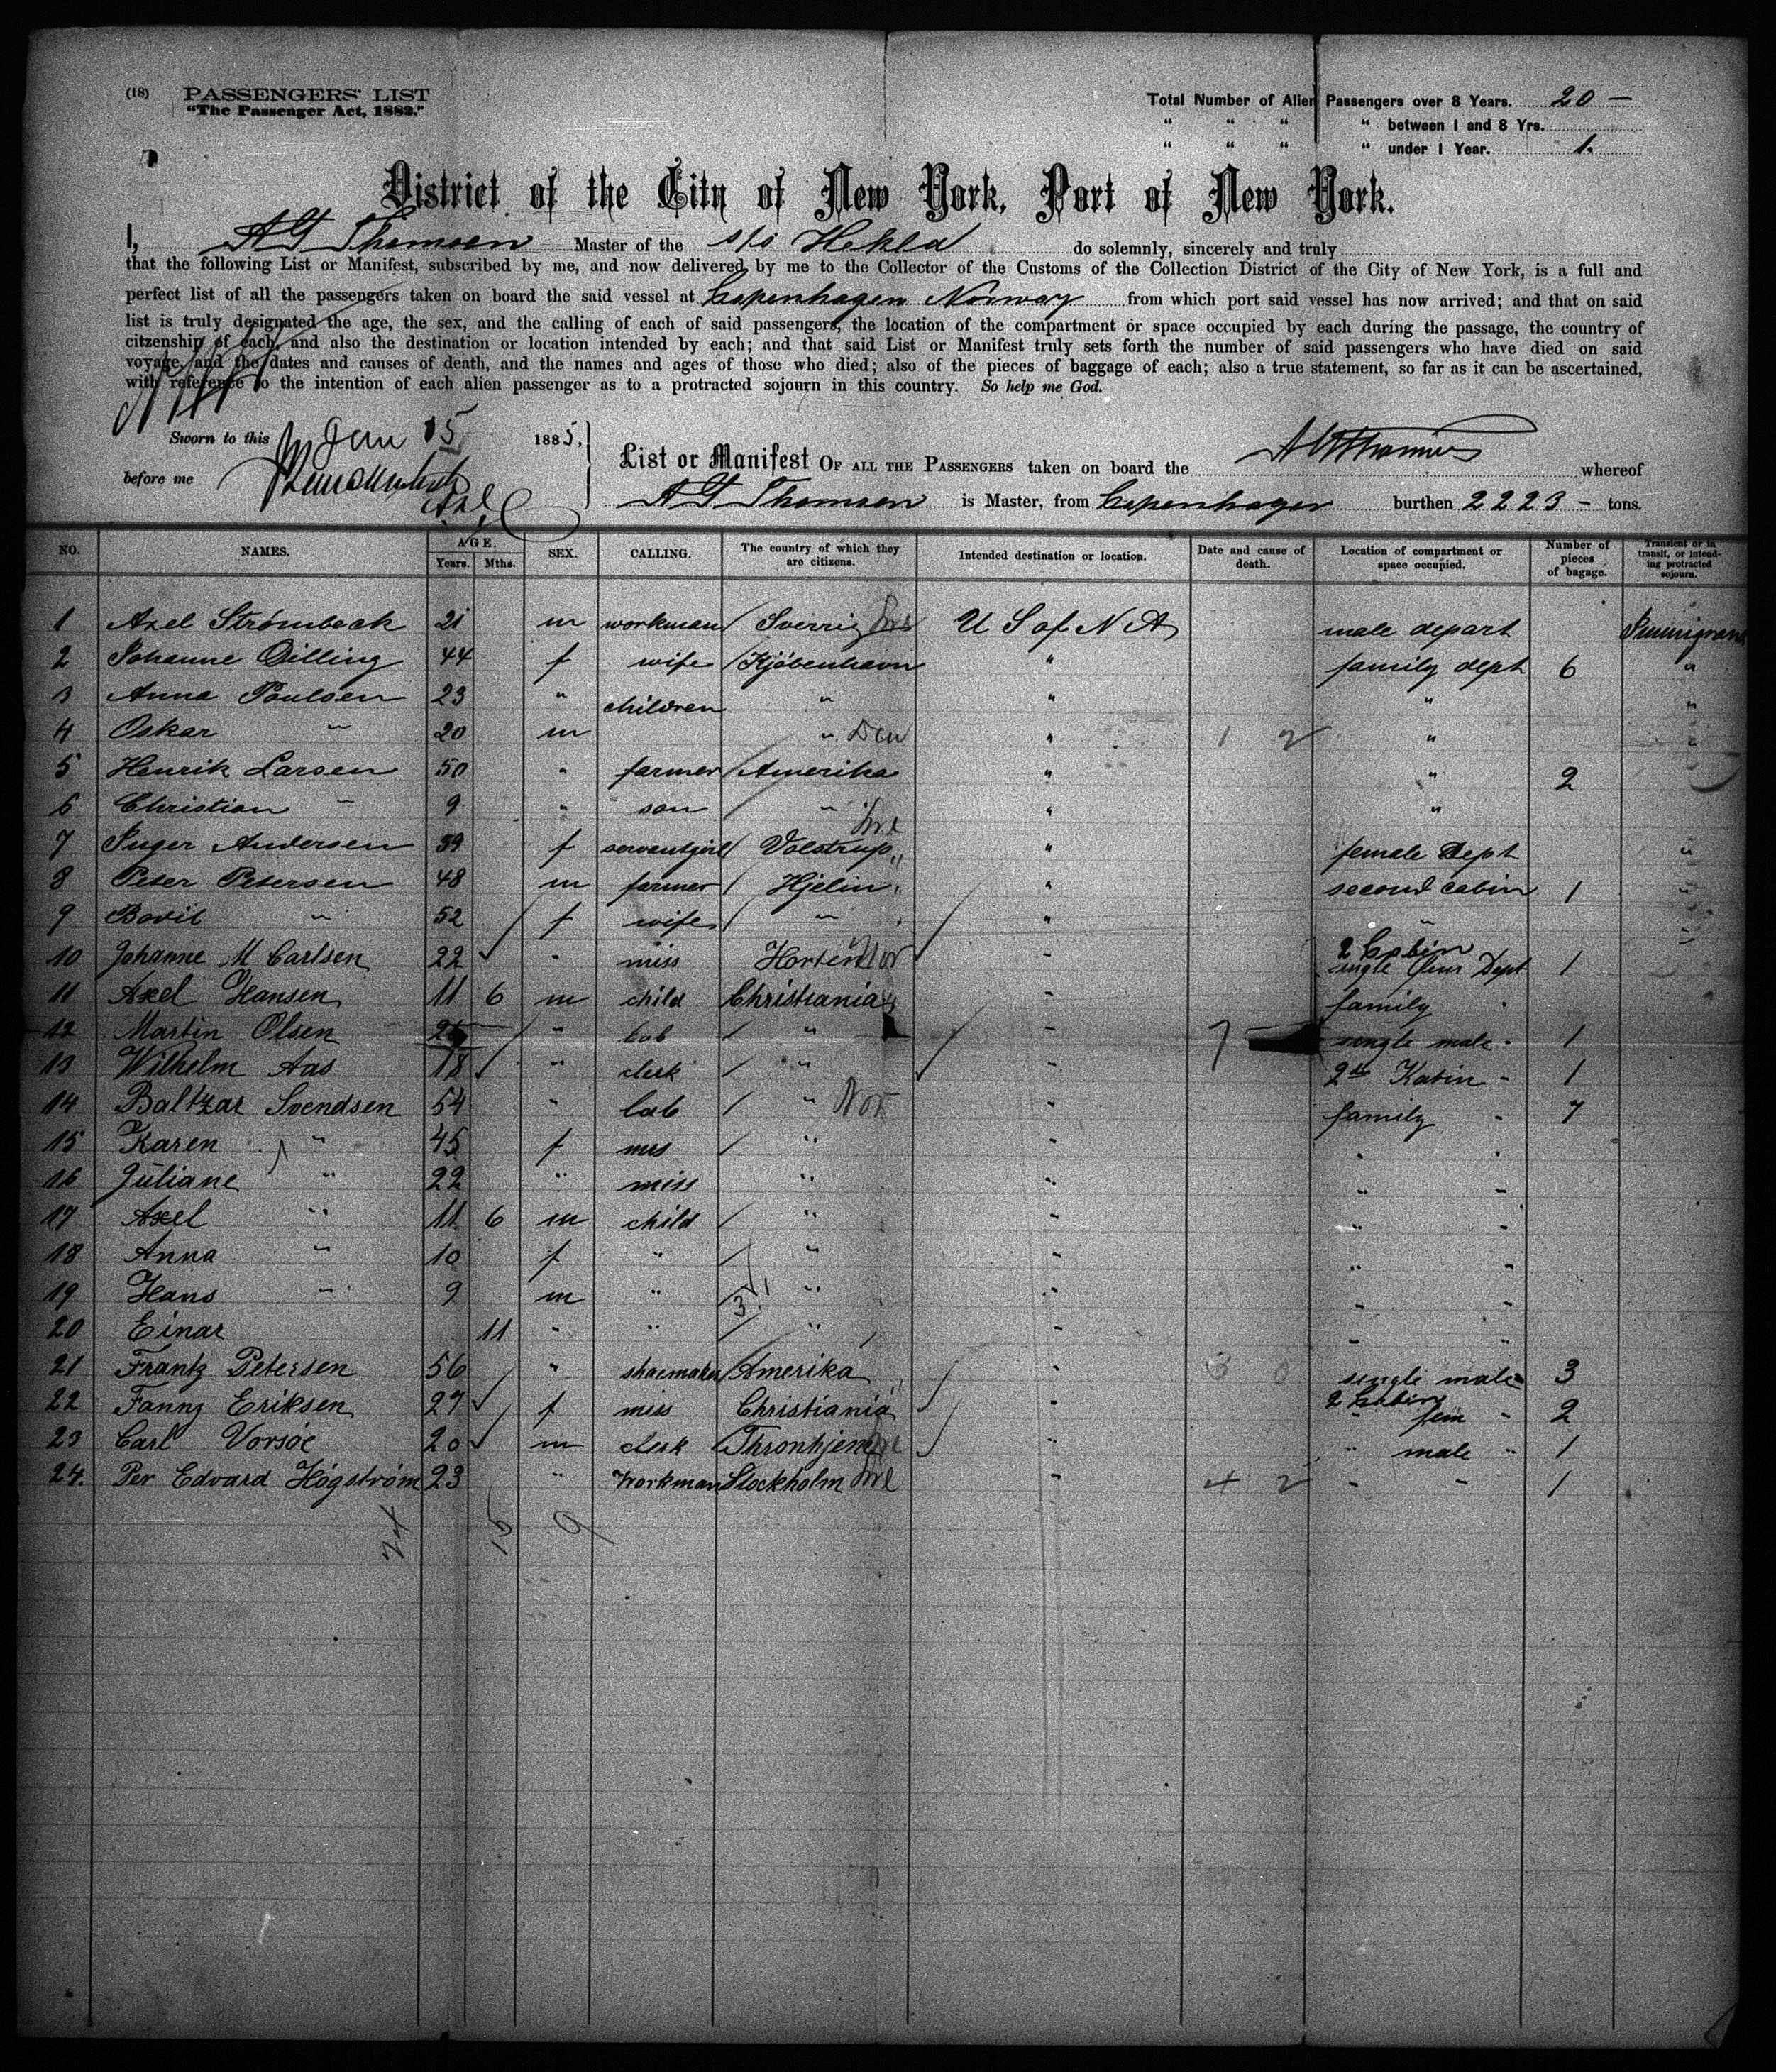 (18) PASSENGERS' LIST
"The Passenger Act, 1882."
Total Number of Alien Passengers over 8 Years. 20 —
" " " " between 1 and 8 Yrs.
" " " " under 1 Year. 1.
District of the City of New York, Port of New York.
I, A G Thomsen Master of the s/s Hekla do solemnly, sincerely and truly
that the following List or Manifest, subscribed by me, and now delivered by me to the Collector of the Customs of the Collection District of the City of New York, is a full and
perfect list of all the passengers taken on board the said vessel at Copenhagen Norway from which port said vessel has now arrived; and that on said
list is truly designated the age, the sex, and the calling of each of said passengers, the location of the compartment or space occupied by each during the passage, the country of
citzenship of each, and also the destination or location intended by each; and that said List or Manifest truly sets forth the number of said passengers who have died on said
voyage, and the dates and causes of death, and the names and ages of those who died; also of the pieces of baggage of each; also a true statement, so far as it can be ascertained,
with reference to the intention of each alien passenger as to a protracted sojourn in this country. So help me God.
Sworn to this Jan 15 1885,
before me
List or Manifest OF ALL THE PASSENGERS taken on board the whereof
A G Thomsen is Master, from Copenhagen burthen 2223 - tons.
NO. NAMES. AGE. Years. Mths. SEX. CALLING. The country of which they are citizens. Intended destination or location. Date and cause of death. Location of compartment or space occupied. Number of pieces of bagage. Transient or in transit, or intending protracted sojourn.
1 Axel Strømbeck 21 m workman Sverrig U S of N A male depart Immigrant
2 Johanne Dilling 44 f wife Kjöbenhavn " family dept 6 "
3 Anna Poulsen 23 " children " " " "
4 Oskar " 20 m " Den " 1 2 " "
5 Henrik Larsen 50 " farmer Amerika " " 2
6 Christian " 9 " son " " "
7 Inger Andersen 39 f servantgirl Volstrup " female Dept "
8 Peter Petersen 48 m farmer Hjelm " second cabin 1 "
9 Bodil " 52 f wife " " " "
10 Johanne M Carlsen 22 " miss Horten Nor " 2 Cabin single fem Dept 1
11 Axel Hansen 11 6 m child Christiania " family "
12 Martin Olsen " lab " " 7 single male " 1
13 Wilhelm Aas 18 " clerk " " 2de Kabin " 1
14 Baltzar Svendsen 54 " lab " Nor " family " 7
15 Karen " 45 f mrs " " " "
16 Juliane " 22 " miss " " " "
17 Axel " 11 6 m child " " " "
18 Anna " 10 f " " " " "
19 Hans " 9 m " " " " "
20 Einar 11 " " " " " "
21 Frantz Petersen 56 " shoemaker Amerika " 3 0 single male 3
22 Fanny Eriksen 27 f miss Christiania " 2 Cabin " fem " 2
23 Carl Vorsöe 20 m clerk Thronhjem " " male " 1
24. Per Edvard Högström 23 " Workman Stockholm " 4 2 " " 1
24 15 9